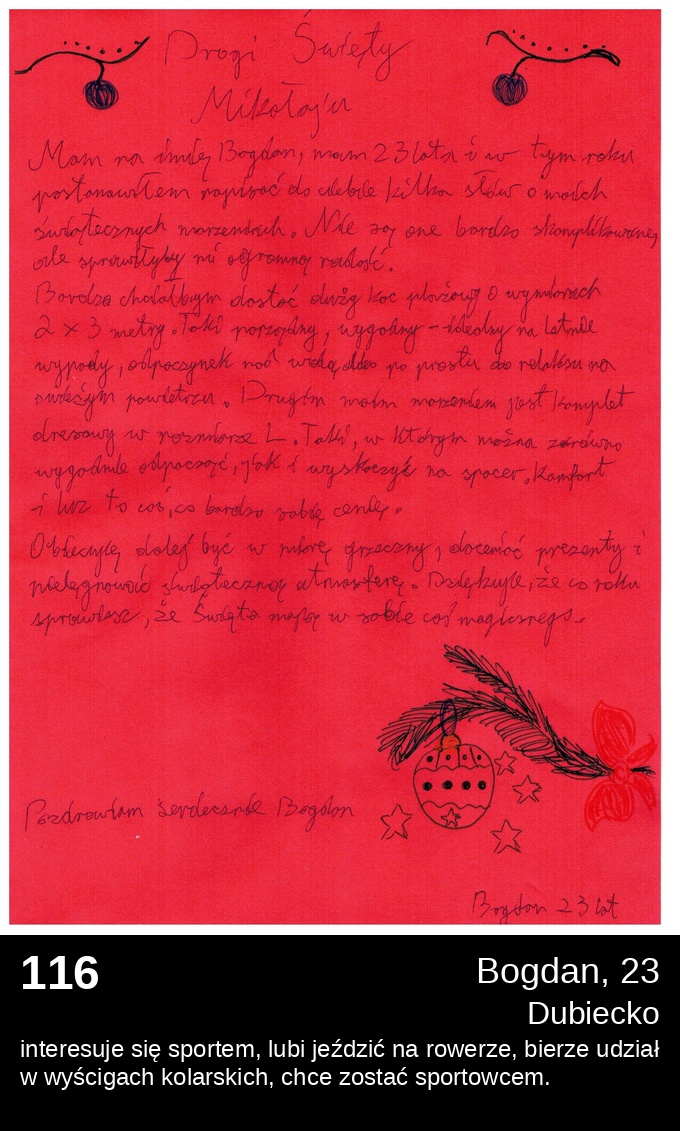 Drogi Święty
Mikołaju
Mam na imię Bogdan, mam 23 lata i w tym roku
postanowiłem napisać do ciebie kilka słów o moich
świątecznych marzeniach. Nie są one bardzo skomplikowane,
ale sprawiłyby mi ogromną radość.
Bardzo chciałbym dostać duży koc plażowy o wymiarach
2 x 3 metry. Taki porządny, wygodny - idealny na letnie
wypady, odpoczynek nad wodą, albo po prostu do relaksu na
świeżym powietrzu. Drugim moim marzeniem jest komplet
dresowy w rozmiarze L. Taki, w którym można zarówno
wygodnie odpocząć, jak i wyskoczyć na spacer. Komfort
i luz to coś, co bardzo sobie cenię.
Obiecuję dalej być w miarę grzeczny, doceniać prezenty i
pielęgnować świąteczną atmosferę. Dziękuję, że co roku
sprawiasz, że Święta mają w sobie coś magicznego.
Pozdrawiam serdecznie Bogdan
Bogdan 23 lat
116
Bogdan, 23
Dubiecko
interesuje się sportem, lubi jeździć na rowerze, bierze udział
w wyścigach kolarskich, chce zostać sportowcem.